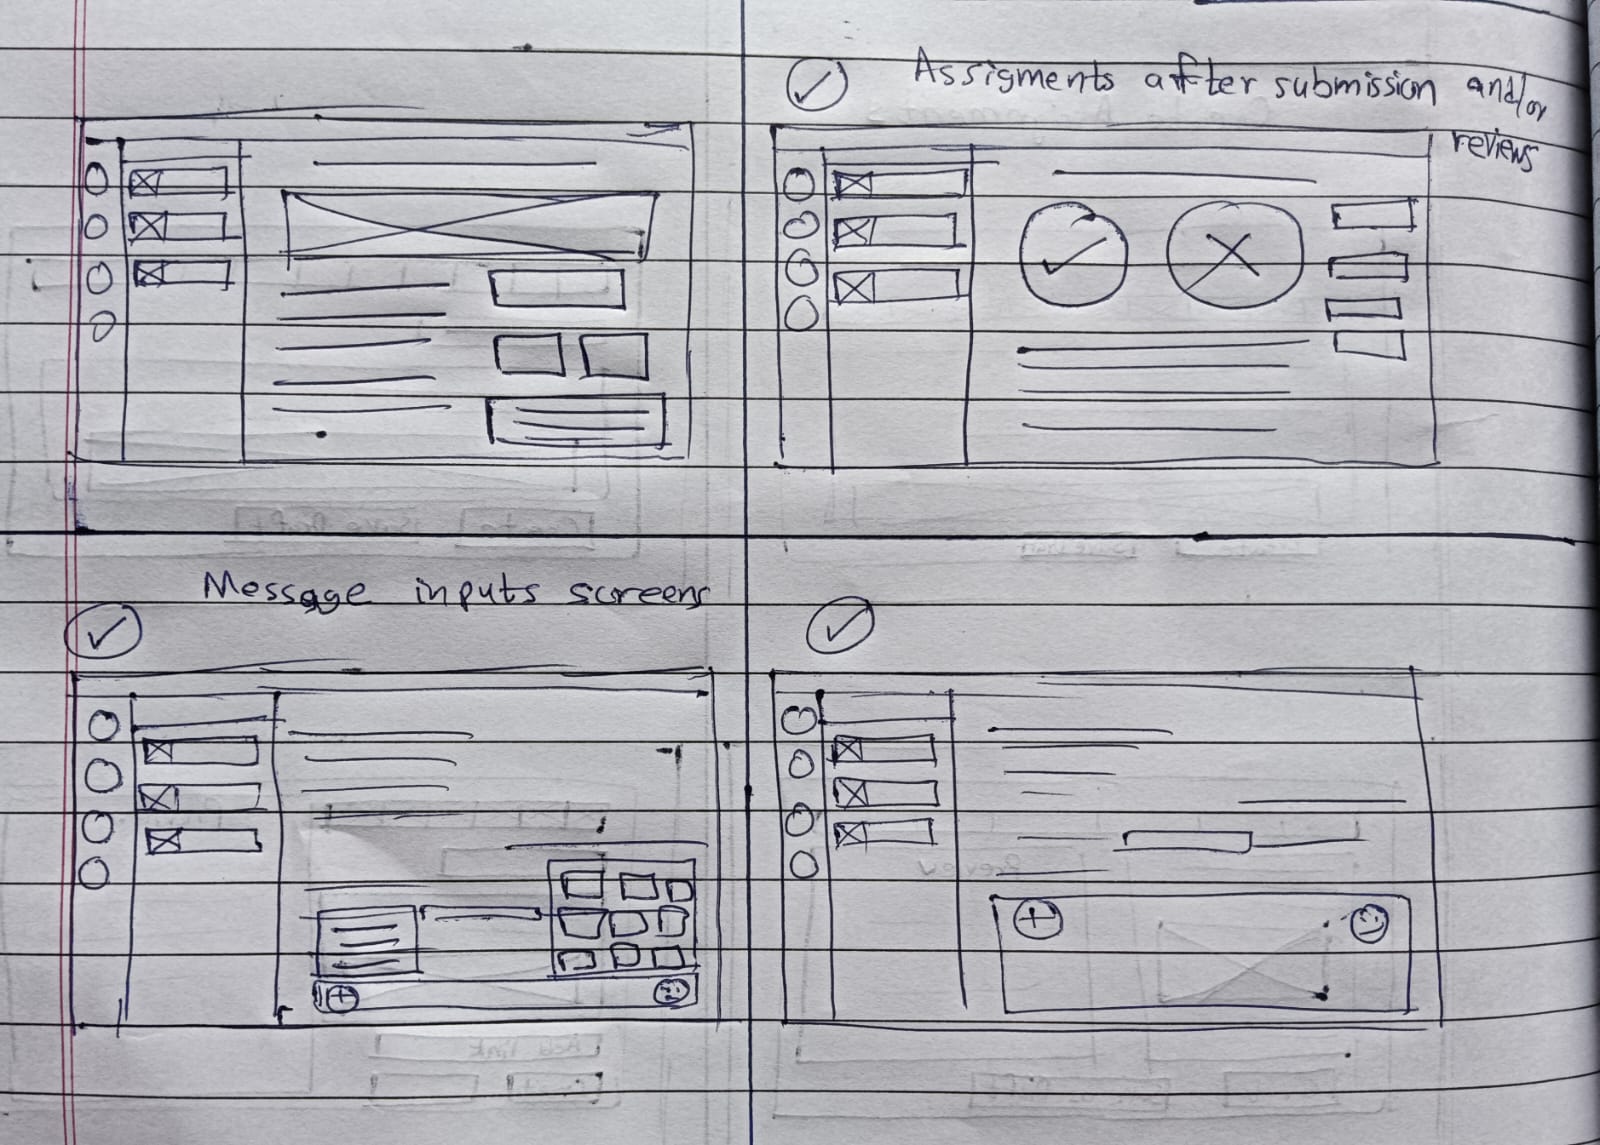 Assigments after submission and/or
reviews
Message inputs screens